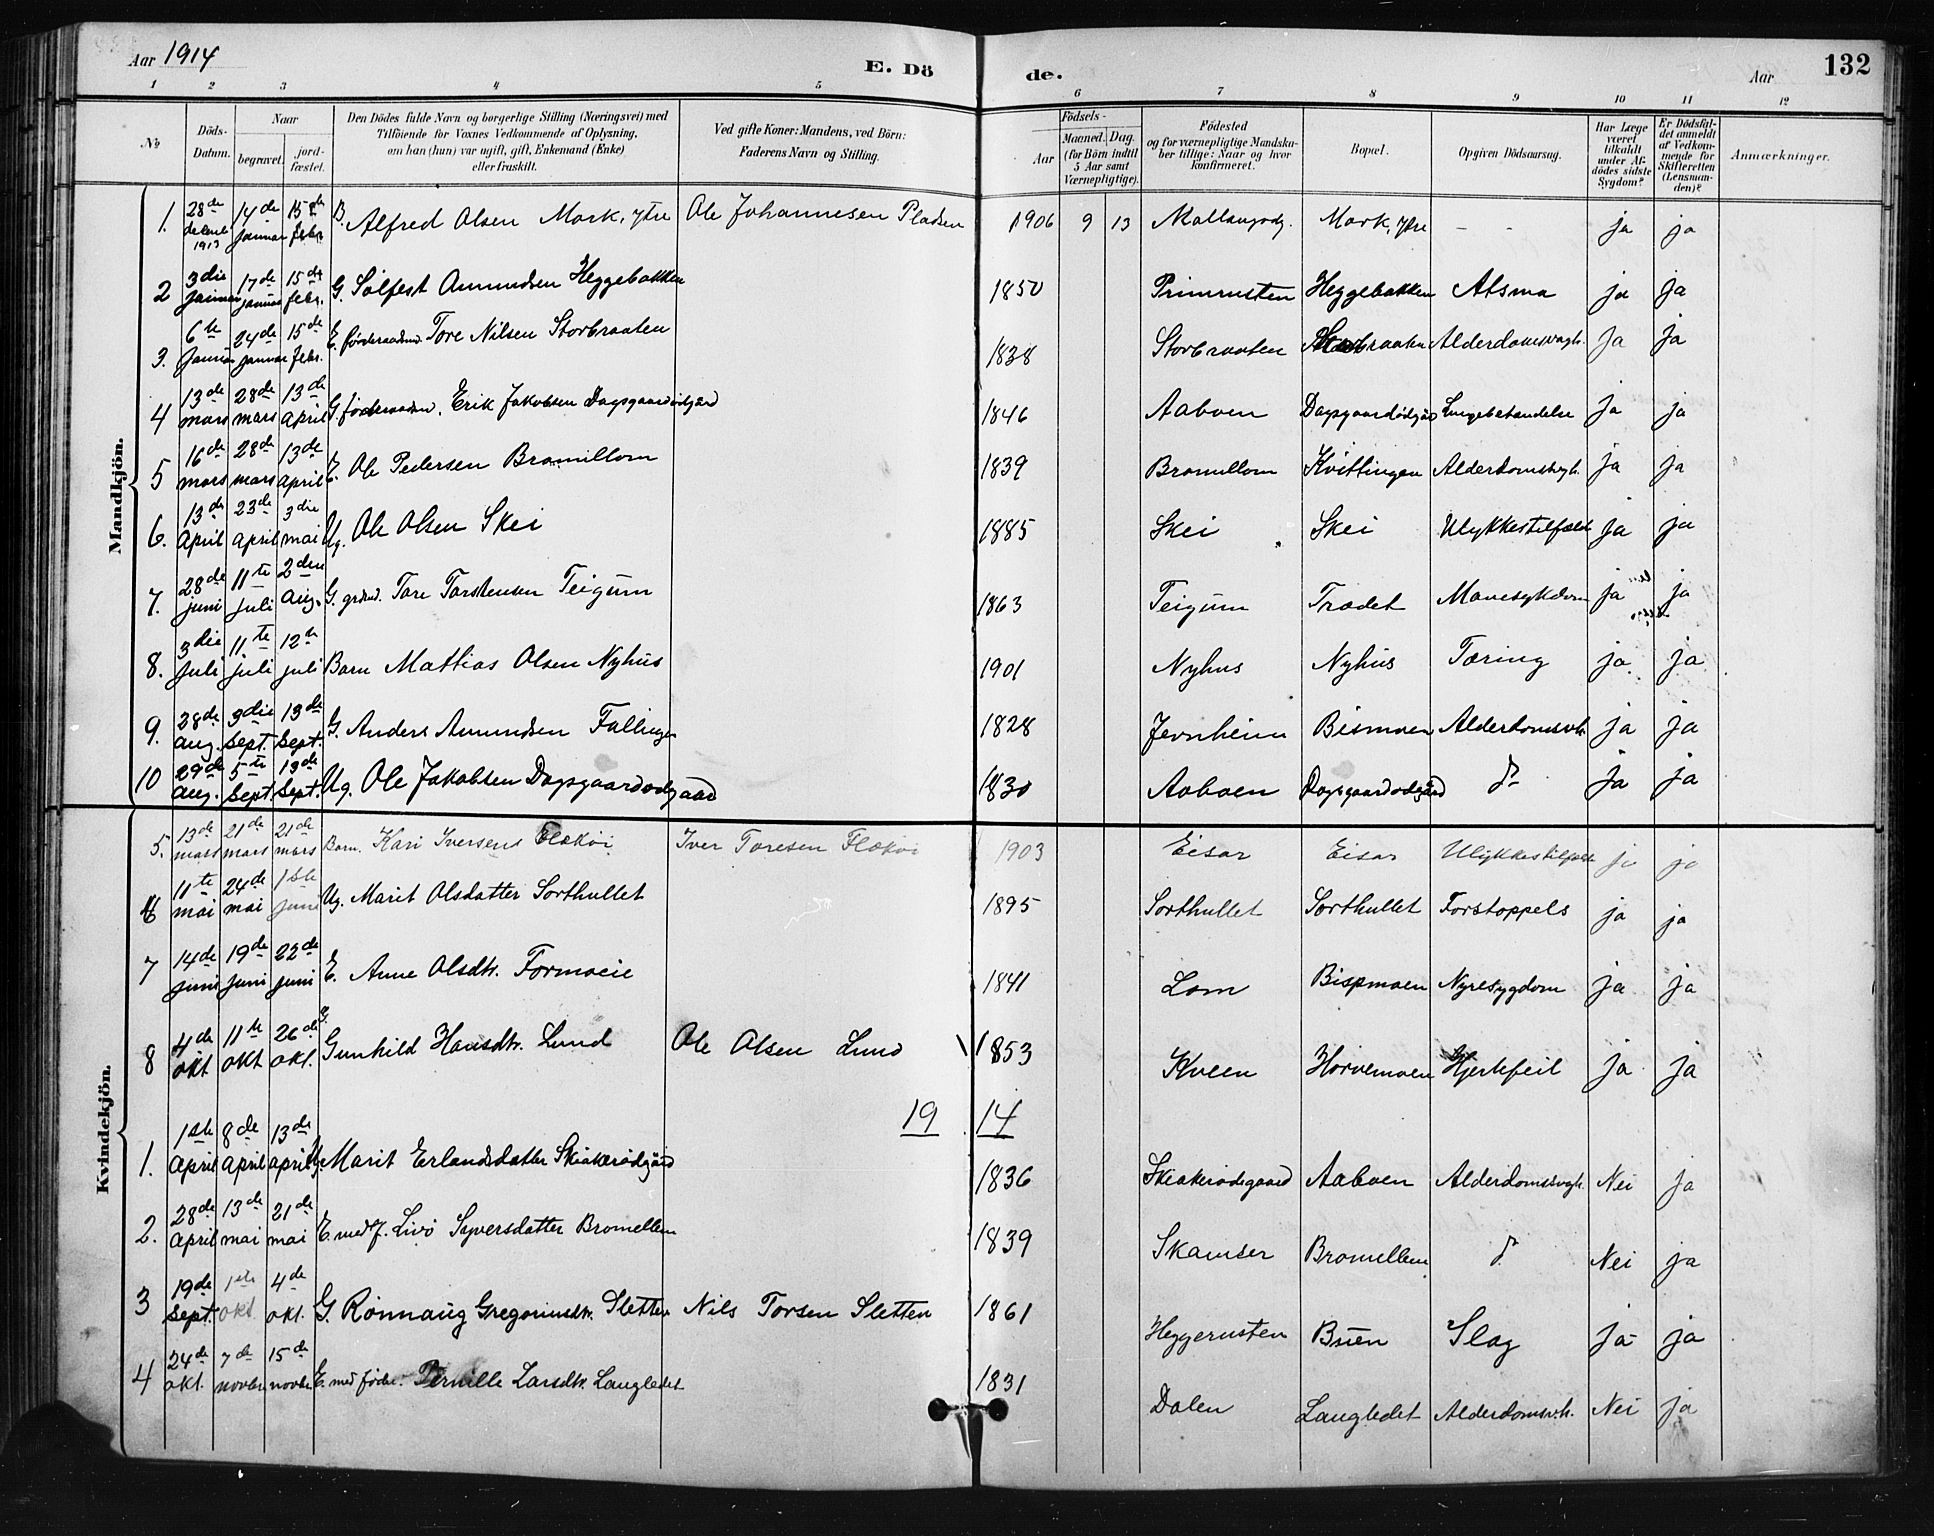 Aar 1914
E. Dö de.
Aar
132
1 2 3 4 5 6 7 8 9 10 11 12
No
Döds-Datum.
Naar
begravet.
jord-fæstet.
Den Dödes fulde Navn og borgerlige Stilling (Næringsvei) med
Tilföiende for Voxnes Vedkommende af Oplysning,
om han (hun) var ugift, gift, Enkemand (Enke)
eller fraskilt.
Ved gifte Koner: Mandens, ved Börn:
Faderens Navn og Stilling.
Födsels-
Aar
Maaned. Dag.
(for Börn indtil
5 Aar samt
Værnepligtige).
Födested
og for værnepligtige Mandska-
ber tillige: Naar og hvor
konfirmeret.
Bopæl.
Opgiven Dödsaarsag.
Har Læge
været
tilkaldt
under Af-
dödes sidste
Sygdom?
Er Dödsfal-
det anmeldt
af Vedkom-
mende for
Skifteretten
(Lensman-
den)?
Anmærkninger.
Mandkjön.
1. 28de 1913 14de januar 15de febr. B. Alfred Olsen Mork, ytre Ole Johannesen Pladsen 1906 9 13 Mork, ytre - - ja ja
2 3die januar 17de januar 15de febr. G. Sølfest Amundsen Heggebakken 1850 Primrusten Heggebakken Atsma ja ja
3. 6te januar 24de januar 15de febr. E. føderaadsmd. Tore Nilsen Storbraaten 1838 Storbraaten Storbraaten Alderdomssvagh. ja ja
4 13de mars 28de mars 13de april G. føderaadsm. Erik Jakobsen Dagsgaardødgård 1846 Aaboen Dagsgaardødgård Lungebetændelse ja ja
5 16de mars 28de mars 13de april E. Ole Pedersen Bromillom 1839 Bromillom Kvittingen Alderdomssvgh. ja ja
6. 13de april 23de april 3die mai Ug. Ole Olsen Skei 1885 Skei Skei Ulykkestilfæld ja ja
7. 28de juni 11te juli 2den Aug. G. grdmd. Tore Torstensen Teigum 1863 Teigum Trædet Mavesykdom ja ja
8. 3die juli 11te juli 12te juli Barn Mattias Olsen Nyhus 1901 Nyhus Nyhus Tæring ja ja
9. 28de aug. 3die sept. 13de sept. G. Anders Amundsen Fallingen 1828 Jevnheim Bismoen Alderdomssvh. ja ja
10 29de aug. 5te sept. 13de sept. Ug. Ole Jakobsen Dagsgaardødgaard 1830 Aaboen Dagsgaardødgård do ja ja
Kvindekjön.
5. 13de mars 21de mars 21de mars Barn. Kari Iversens Flækøi Iver Toresen Flækøi 1903 Eisar Eisar Ulykkestilfæld ja ja
6 11te mai 24de mai 1ste juni Ug. Marit Olsdatter Sorthullet 1895 Sorthullet Sorthullet Forstoppels ja ja
7 14de juni 19de juni 22de juni E. Anne Olsdtr. Formoeie 1841 Lom Bispmoen Nyresygdom ja ja
8 4de okt 11te okt 26de okt. G. Gunhild Hansdtr. Lund Ole Olsen Lund 1853 Kveen Horvemoen Hjertefeil ja ja
19 14
1. 1ste april 8de april 13de april Ug. Marit Erlandsdatter Skiakerødgård 1836 Skiakerødegaard Aaboen Alderdomssvgh. Nei ja
2. 28de april 13de mai 21de mai E. med f. Livø Syversdatter Bromellem 1839 Skamser Bromellem do Nei ja
3 19de sept. 1ste okt. 4de okt. G. Rønnaug Gregoriusdtr. Sletten Nils Torsen Sletten 1861 Heggerusten Buen Slag ja ja
4 24de okt. 7de novbr 15de novbr E. med føder. Pernille Larsdtr. Langledet 1831 Dalen Langledet Alderdomssv.h. Nei ja